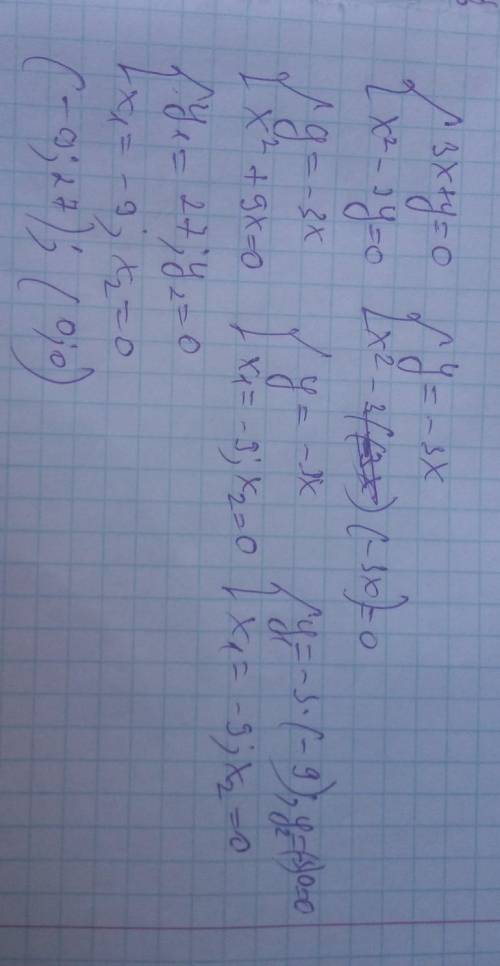 { 3x+y=0
{ x² - 3y=0
{ y = -3x
{ x² - 3 (-3x)=0
{ y = -3x
{ x² + 9x=0
{ y = -3x
{ x₁ = -9; x₂=0
{ y₁ = -3·(-9); y₂=(-3)0=0
{ x₁ = -9; x₂=0
{ y₁ = 27; y₂=0
{ x₁ = -9; x₂=0
(-9; 27); (0;0)